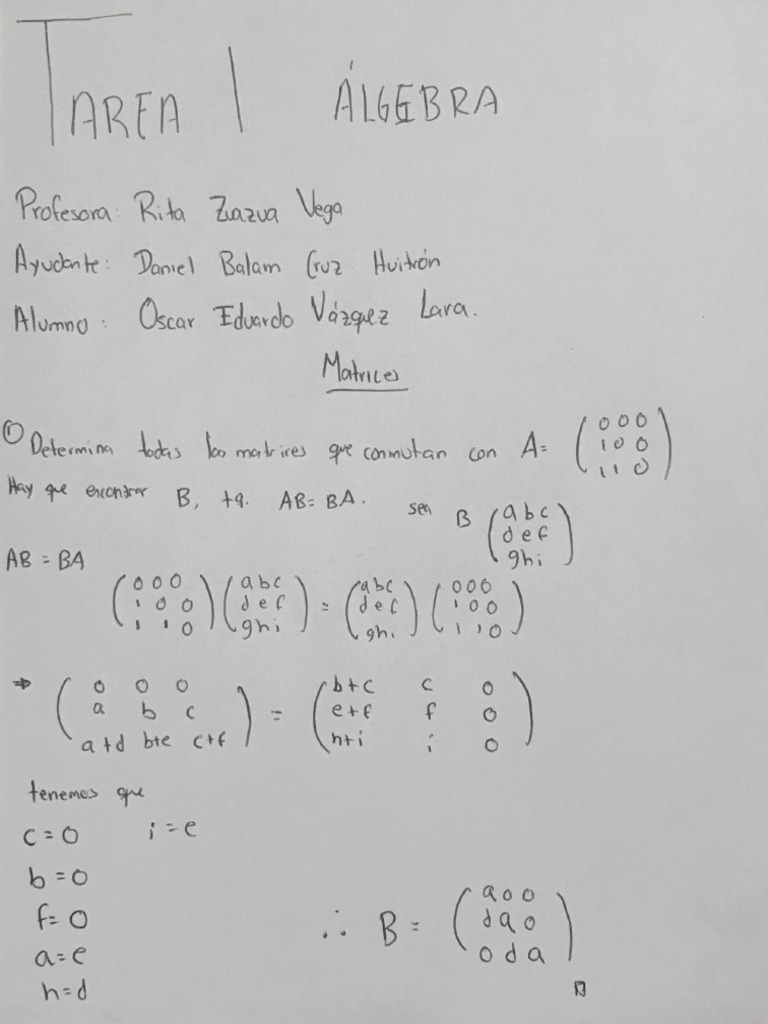 TAREA 1 ÁLGEBRA
Profesora: Rita Zuazua Vega
Ayudante: Daniel Balam Cruz Huitrón
Alumno: Oscar Eduardo Vázquez Lara.
Matrices
① Determina todas las matrices que conmutan con A= (0 0 0
1 0 0
1 1 0)
Hay que encontrar B, tq. AB=BA. sea B (a b c
d e f
g h i)
AB = BA
(0 0 0 (a b c = (a b c (0 0 0
1 0 0 d e f d e f 1 0 0
1 1 0) g h i) g h i) 1 1 0)
⇒ (0 0 0 = (b+c c 0
a b c e+f f 0
a+d b+e c+f) h+i i 0)
tenemos que
c=0 i=e
b=0
f=0
a=e
h=d
∴ B = (a 0 0
d a 0
0 d a)